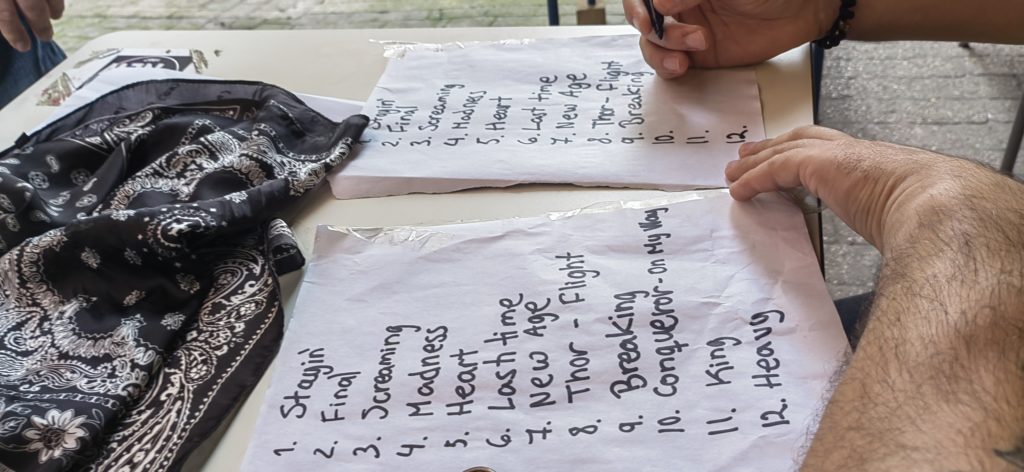 2. Final
3. Screaming
4. Madness
5. Heart
6. Last time
7. New Age
8. Thor - Flight
9. Breaking
10.
11.
12.
1. Stayin'
2. Final
3. Screaming
4. Madness
5. Heart
6. Last time
7. New Age
8. Thor - Flight
9. Breaking
10. Conqueror - on My Way
11. King
12. Heavy